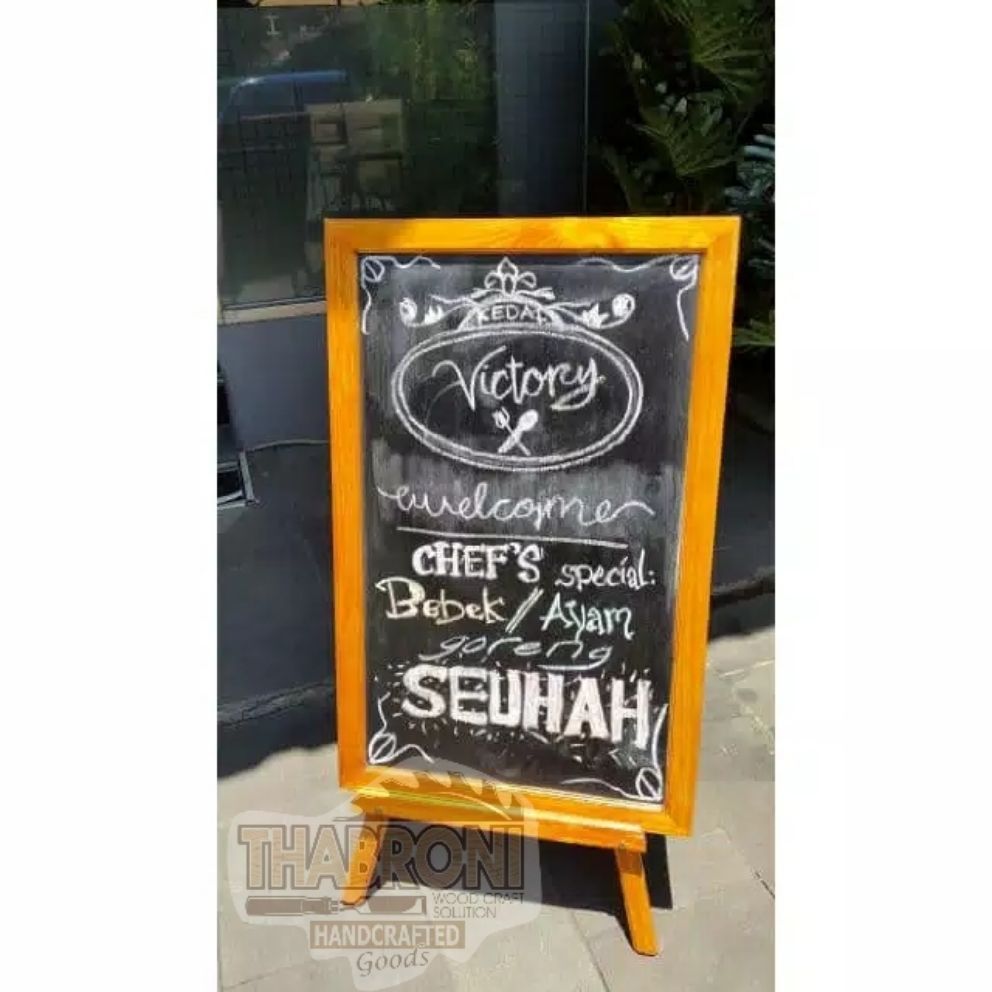 KEDAI
Victory
welcome
CHEF'S special:
Bebek/Ayam
goreng
SEUHAH
THABRONI
WOOD CRAFT
SOLUTION
HANDCRAFTED
Goods